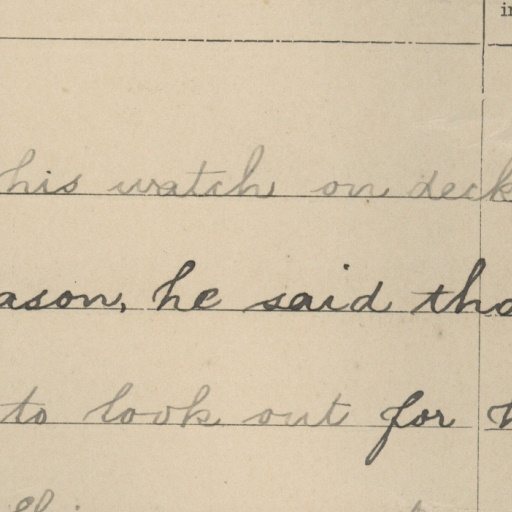 his watch on deck
ason, he said tha
to look out for